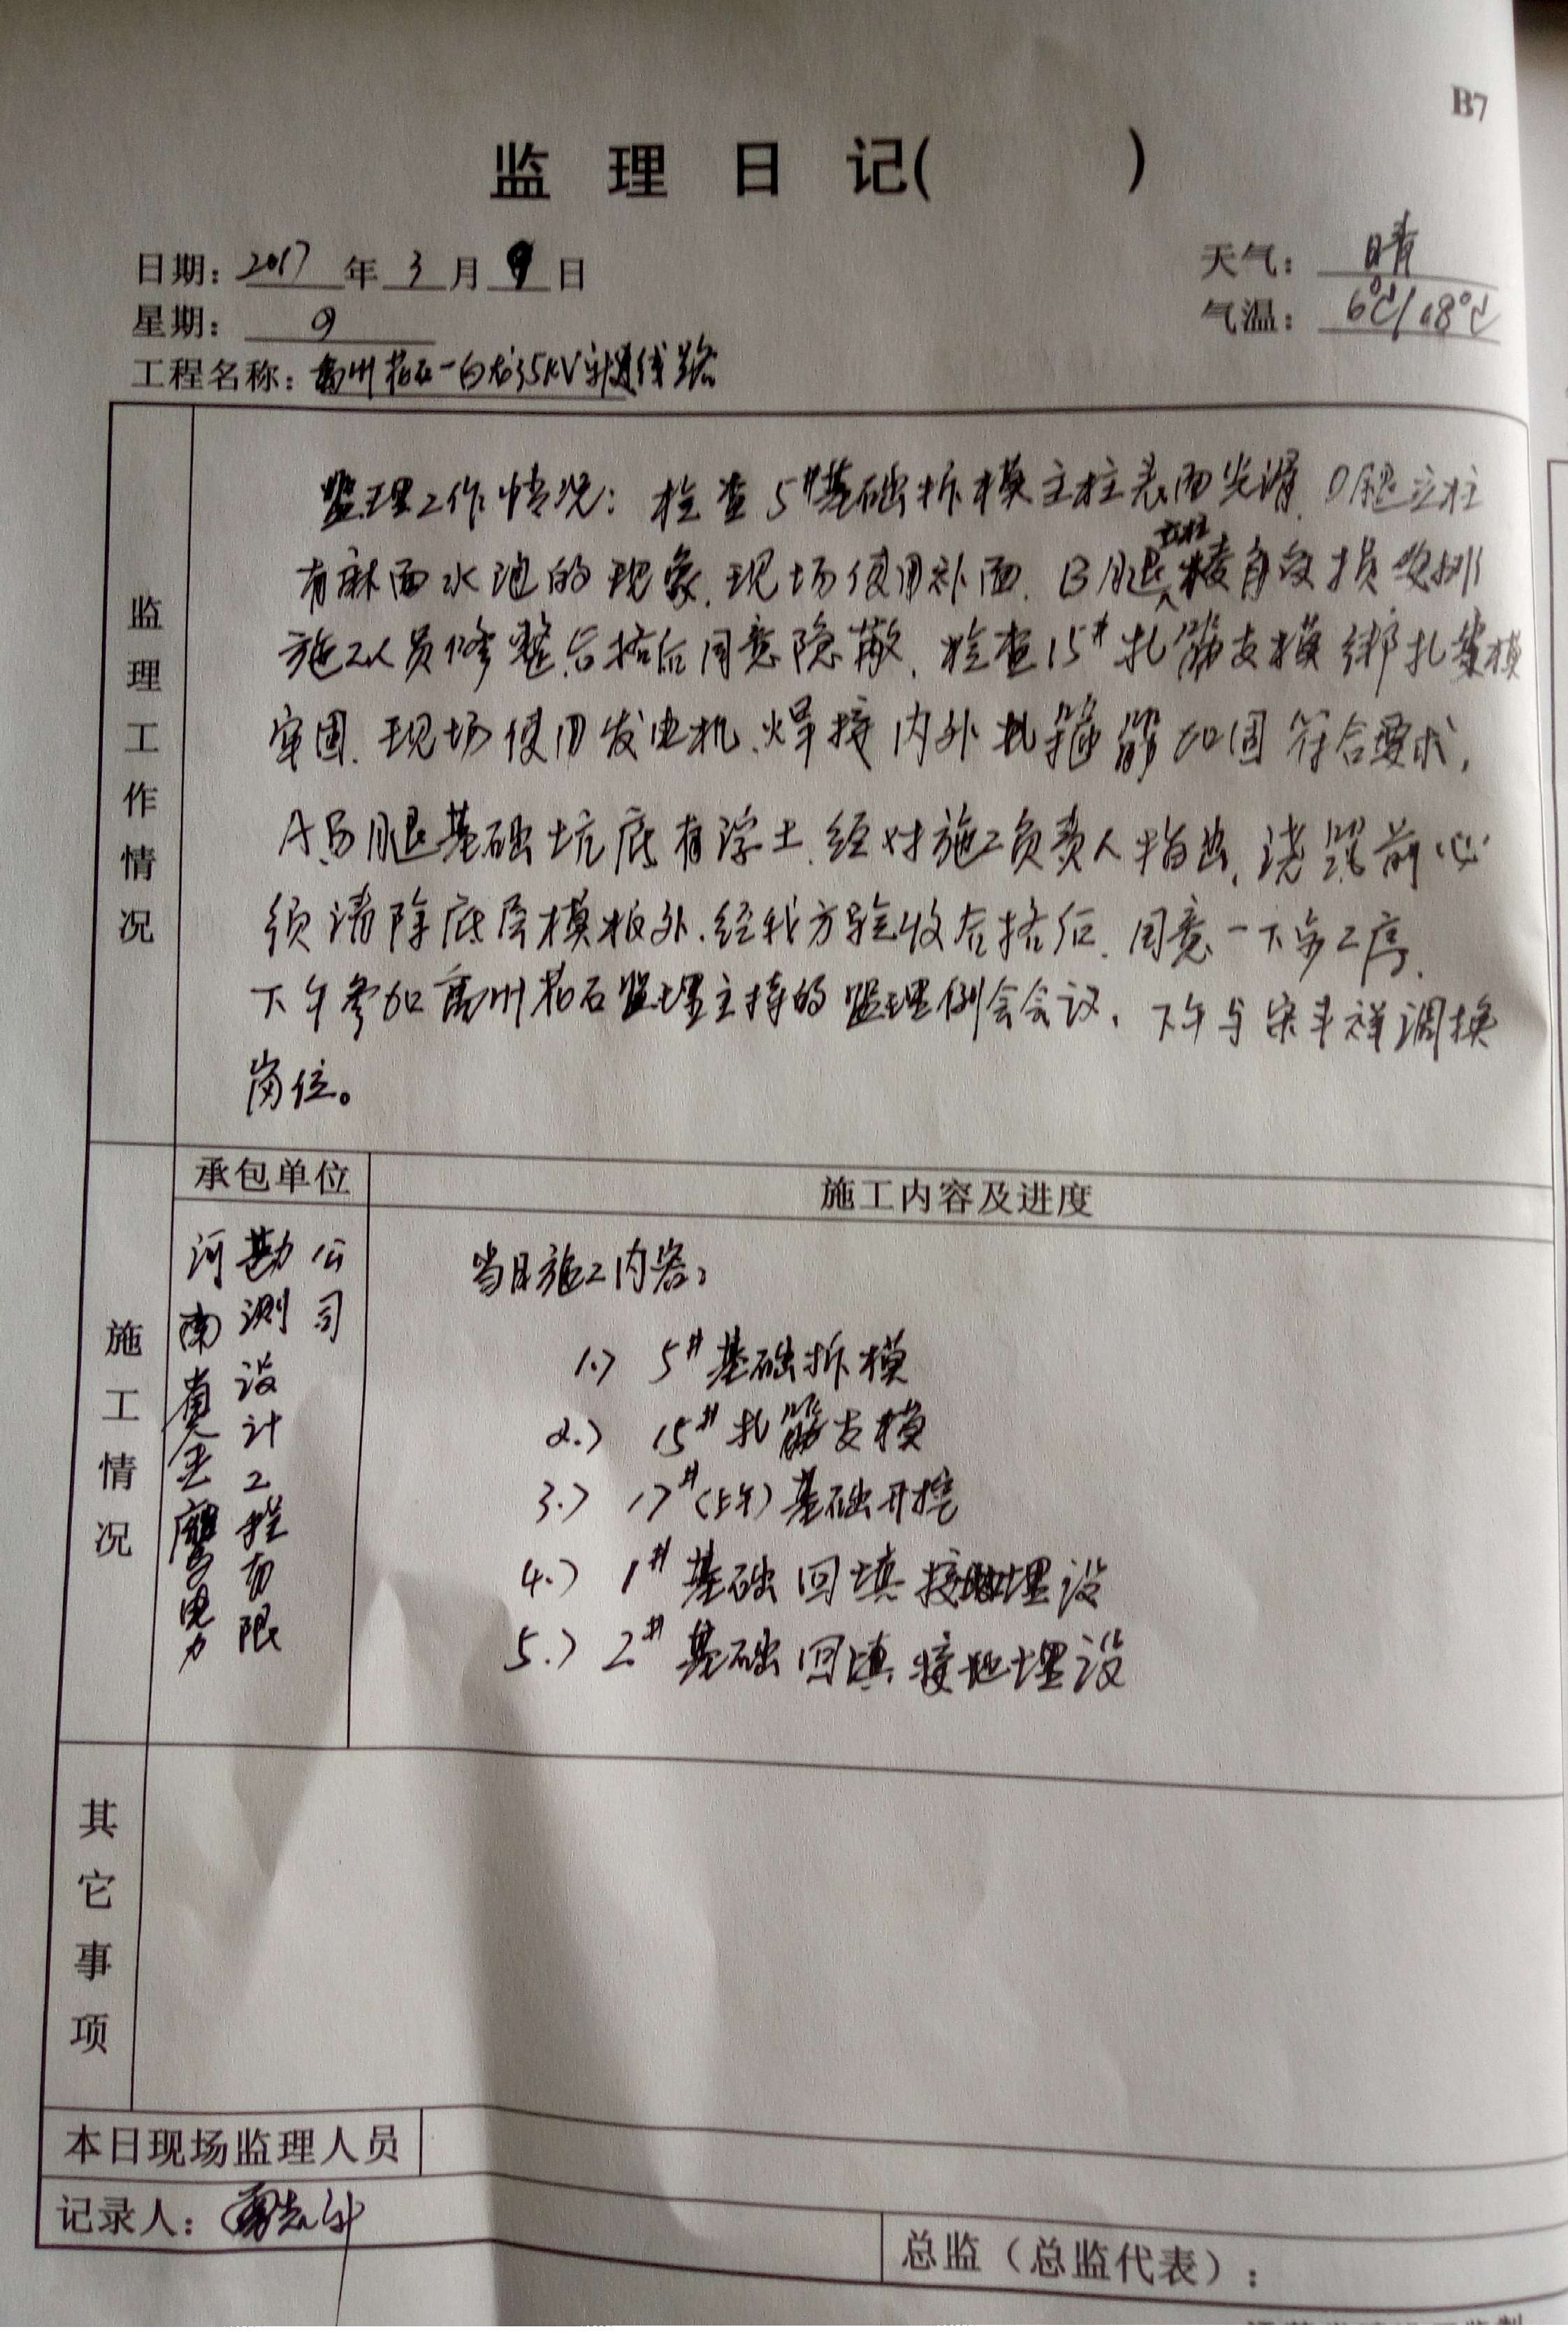 B7
监理日记( )
日期：2017年3月9日
天气：晴
星期：
气温：6℃/18℃
工程名称：禹州花石一白龙35KV线路
监理工作情况
监理工作情况：检查5#基础拆模主柱表面光滑.D腿立柱
有麻面水泡的现象.现场使用补面.B腿立柱棱角破损
施工人员修整合格后同意隐蔽.检查15#扎筋支模绑扎模
牢固.现场使用发电机.焊接内外箍筋加固符合要求,
A.B腿基础坑底有浮土.经对施工负责人指出,浇筑前必
须清除底层模板外.经我方验收合格后.同意一下步工序.
下午参加禹州花石监理主持的监理例会会议,下午与宋丰祥调换
岗位。
施工情况
承包单位
施工内容及进度
河南奠金鹰电力
勘测设计工程有限
公司
当日施工内容:
1.) 5#基础拆模
2.) 15#扎筋支模
3.) 17#(上午)基础开挖
4.) 1#基础回填接地埋设
5.) 2#基础回填接地埋设
其它事项
本日现场监理人员
记录人：
总监（总监代表）：